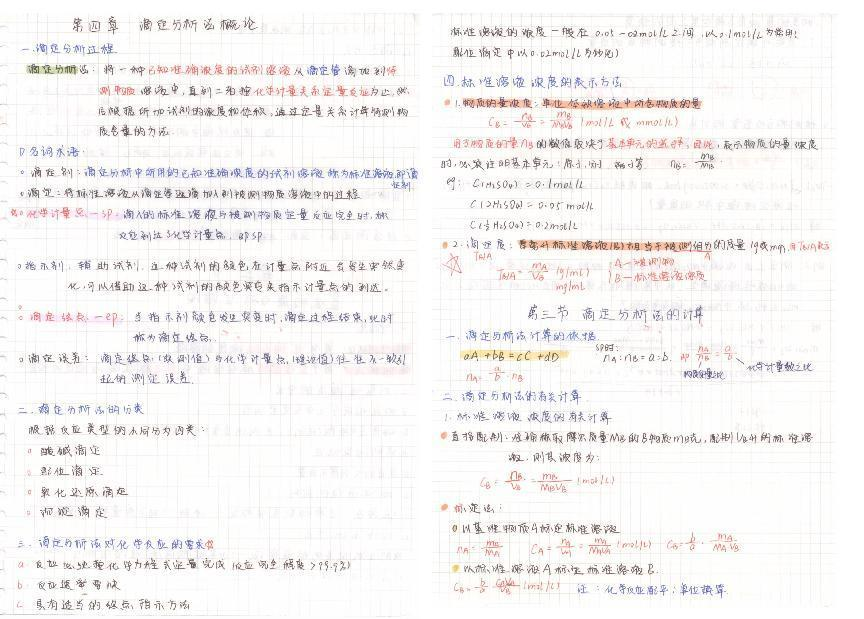 第四章 滴定分析法概论
一、滴定分析过程
滴定分析法：将一种已知准确浓度的试剂溶液从滴定管滴加到待
测物质溶液中，直到二者按化学计量关系定量反应为止，然
后根据所加试剂的浓度和体积，通过定量关系计算待测物
质含量的方法
1)名词术语：
滴定剂：滴定分析中所用的已知准确浓度的试剂溶液称为标准溶液，即滴
定剂
滴定：将标准溶液从滴定管逐滴加入到被测物质溶液中的过程
化学计量点—sp：滴入的标准溶液与被测物质定量反应完全时，称
反应到达了化学计量点，即sp
指示剂：辅助试剂，这种试剂的颜色在计量点附近会发生突然变
化，可以借助这种试剂的颜色突变来指示计量点的到达。
滴定终点—ep：当指示剂颜色发生突变时，滴定过程结束，此时
称为滴定终点.
滴定误差：滴定终点(实测值)与化学计量点(理论值)往往不一致引
起的测定误差.
二、滴定分析法的分类
根据反应类型的不同分为四类：
酸碱滴定
配位滴定
氧化还原滴定
沉淀滴定
三、滴定分析法对化学反应的要求
a 反应必须按化学方程式定量完成(反应完全程度>99.9%)
b 反应速率要快
c 具有适当的终点指示方法
标准溶液的浓度一般在0.05-0.2mol/L之间，以0.1mol/L为常用；
配位滴定中以0.02mol/L为妙记)
四、标准溶液浓度的表示方法
1.物质的量浓度：单位体积溶液中所含物质的量
CB = nB/VB = mB/MBVB (mol/L 或 mmol/L)
由于物质的量nB的数值取决于基本单元的选择，因此，表示物质的量浓度
时，必须注明基本单元：原子，分子，离子等 nB = mB/MB.
例：C(H₂SO₄) = 0.1mol/L
C(2H₂SO₄) = 0.05 mol/L
C(½H₂SO₄) = 0.2mol/L
2.滴定度：每毫升标准溶液(B)相当于被测组分的质量(g或mg)，用TB/A表示
TB/A = mA/VB (g/mL) mg/mL
A—被测物
B—标准溶液溶质
第三节 滴定分析法的计算
一、滴定分析法计算的依据
aA + bB = cC + dD
sp时：nA : nB = a : b. 即 nA/nB = a/b
物质的量之比 化学计量数之比
nA = a/b · nB
二、滴定分析法的有关计算
1.标准溶液浓度的有关计算
直接配制：准确称取摩尔质量MB的B物质mB克，配制VB升的标准溶
液，则其浓度为：
CB = nB/VB = mB/MBVB (mol/L)
标定法：
以基准物质A标定标准溶液
nA = mA/MA CA = nA/VA = mA/MAVA (mol/L) CB = b/a · mA/MAVB
以标准溶液A标定标准溶液B.
CB = b/a CAVA/VB (mol/L) 注：化学反应配平；单位换算.